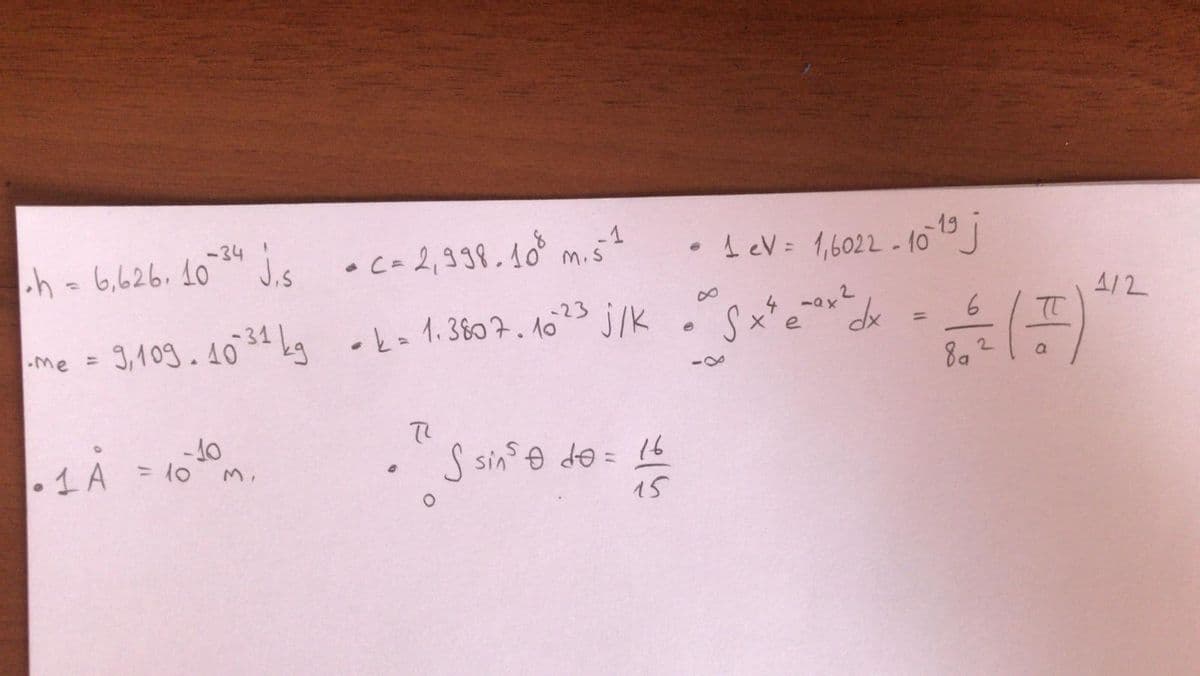 • h = 6,626. 10⁻³⁴ j.s • c = 2,998. 10⁸ m.s⁻¹ • 1 eV = 1,6022 . 10⁻¹⁹ j
• me = 9,109. 10⁻³¹ kg • k = 1.3807. 10⁻²³ j/K • ∫_{-∞}^{∞} x⁴ e^{-ax²} dx = 6/(8a²) (π/a)^{1/2}
• 1 Å = 10⁻¹⁰ m. • ∫_{0}^{π} sin⁵ θ dθ = 16/15